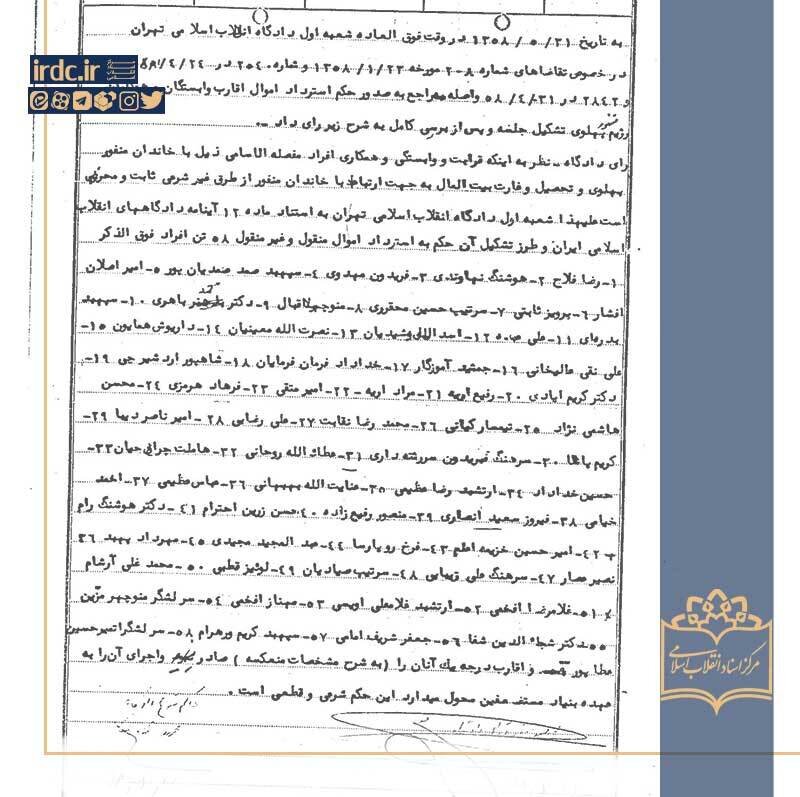 به تاریخ ۱۳۵۸/۵/۳۱ در وقت فوق العاده شعبه اول دادگاه انقلاب اسلامی تهران
در خصوص تقاضاهای شماره ۲۰۸ مورخه ۱۳۵۸/۱/۲۳ و شماره ۲۵۴۰ در ۵۸/۴/۲۴
irdc.ir
و ۲۸۴۲ در ۵۸/۴/۳۱ واصله مراجع به صدور حکم استرداد اموال اقارب وابستگان
رژیم منفور پهلوی تشکیل جلسه و پس از بررسی کامل به شرح زیر رای داد ـ
رای دادگاه ـ نظر به اینکه قرابت و وابستگی و همکاری افراد مفصله الاسامی ذیل با خاندان منفور
پهلوی و تحصیل و غارت بیت المال به جهت ارتباط با خاندان منفور از طرق غیر شرعی ثابت و محرز
است علیهذا شعبه اول دادگاه انقلاب اسلامی تهران به استناد ماده ۱۲ آئینامه دادگاههای انقلاب
اسلامی ایران و طرز تشکیل آن حکم به استرداد اموال منقول و غیر منقول ۵۸ تن افراد فوق الذکر
۱ـ رضا فلاح ۲ـ هوشنگ نهاوندی ۳ـ فریدون مهدوی ۴ـ سپهبد صمد صمدیان پور ۵ـ امیر اصلان
افشار ۶ـ پرویز ثابتی ۷ـ سرتیپ حسین محقری ۸ـ منوچهر اقبال ۹ـ دکتر محمد باهری ۱۰ـ سپهبد
بدره‌ای ۱۱ـ علی عبده ۱۲ـ اسدالله رشیدیان ۱۳ـ نصرت الله معینیان ۱۴ـ داریوش همایون ۱۵ـ
علی نقی عالیخانی ۱۶ـ جمشید آموزگار ۱۷ـ خداداد فرمان فرمایان ۱۸ـ شاهپور اردشیر جی ۱۹ـ
دکتر کریم ایادی ۲۰ـ رفیع اریه ۲۱ـ مراد اریه ـ ۲۲ـ امیر متقی ۲۳ـ فرهاد هرمزی ۲۴ـ محسن
هاشمی نژاد ۲۵ـ تیمسار کیانی ۲۶ـ محمد رضا نقابت ۲۷ـ علی رضایی ۲۸ـ امیر ناصر دیبا ۲۹ـ
کریم پاشا ۳۰ـ سرهنگ فریدون سررشته داری ۳۱ـ عطاء الله روحانی ۳۲ـ هاملت جرانی حیان ۳۳ـ
حسین خداداد ۳۴ـ ارتشبد رضا عظیمی ۳۵ـ عنایت الله بهبهانی ۳۶ـ عباس عظیمی ۳۷ـ احمد
خیامی ۳۸ـ فیروز سعید انصاری ۳۹ـ منصور رفیع زاده ۴۰ـ حسن زرین احترام ۴۱ـ دکتر هوشنگ رام
۴۲ـ امیر حسین خزیمه اعلم ۴۳ـ فرخ رو پارسا ۴۴ـ عبد المجید مجیدی ۴۵ـ مهرداد پهبد ۴۶
نصیر عصار ۴۷ـ سرهنگ علی زیبایی ۴۸ـ سرتیپ صیادیان ۴۹ـ لوئیز قطبی ۵۰ـ محمد علی آرشام
۵۱ـ غلامرضا افخمی ۵۲ـ ارتشبد غلامعلی اویسی ۵۳ـ مهناز افخمی ۵۴ـ سرلشگر منوچهر مزین
۵۵ـ دکتر شجاع الدین شفا ۵۶ـ جعفر شریف امامی ۵۷ـ سپهبد کریم ورهرام ۵۸ـ سرلشگر امیر حسین
عطا پور و اقارب درجه یک آنان را (به شرح مشخصات منعکسه) صادر و اجرای آن را به
عهده بنیاد مستضعفین محول میدارد. این حکم شرعی و قطعی است.
مرکز اسناد انقلاب اسلامی